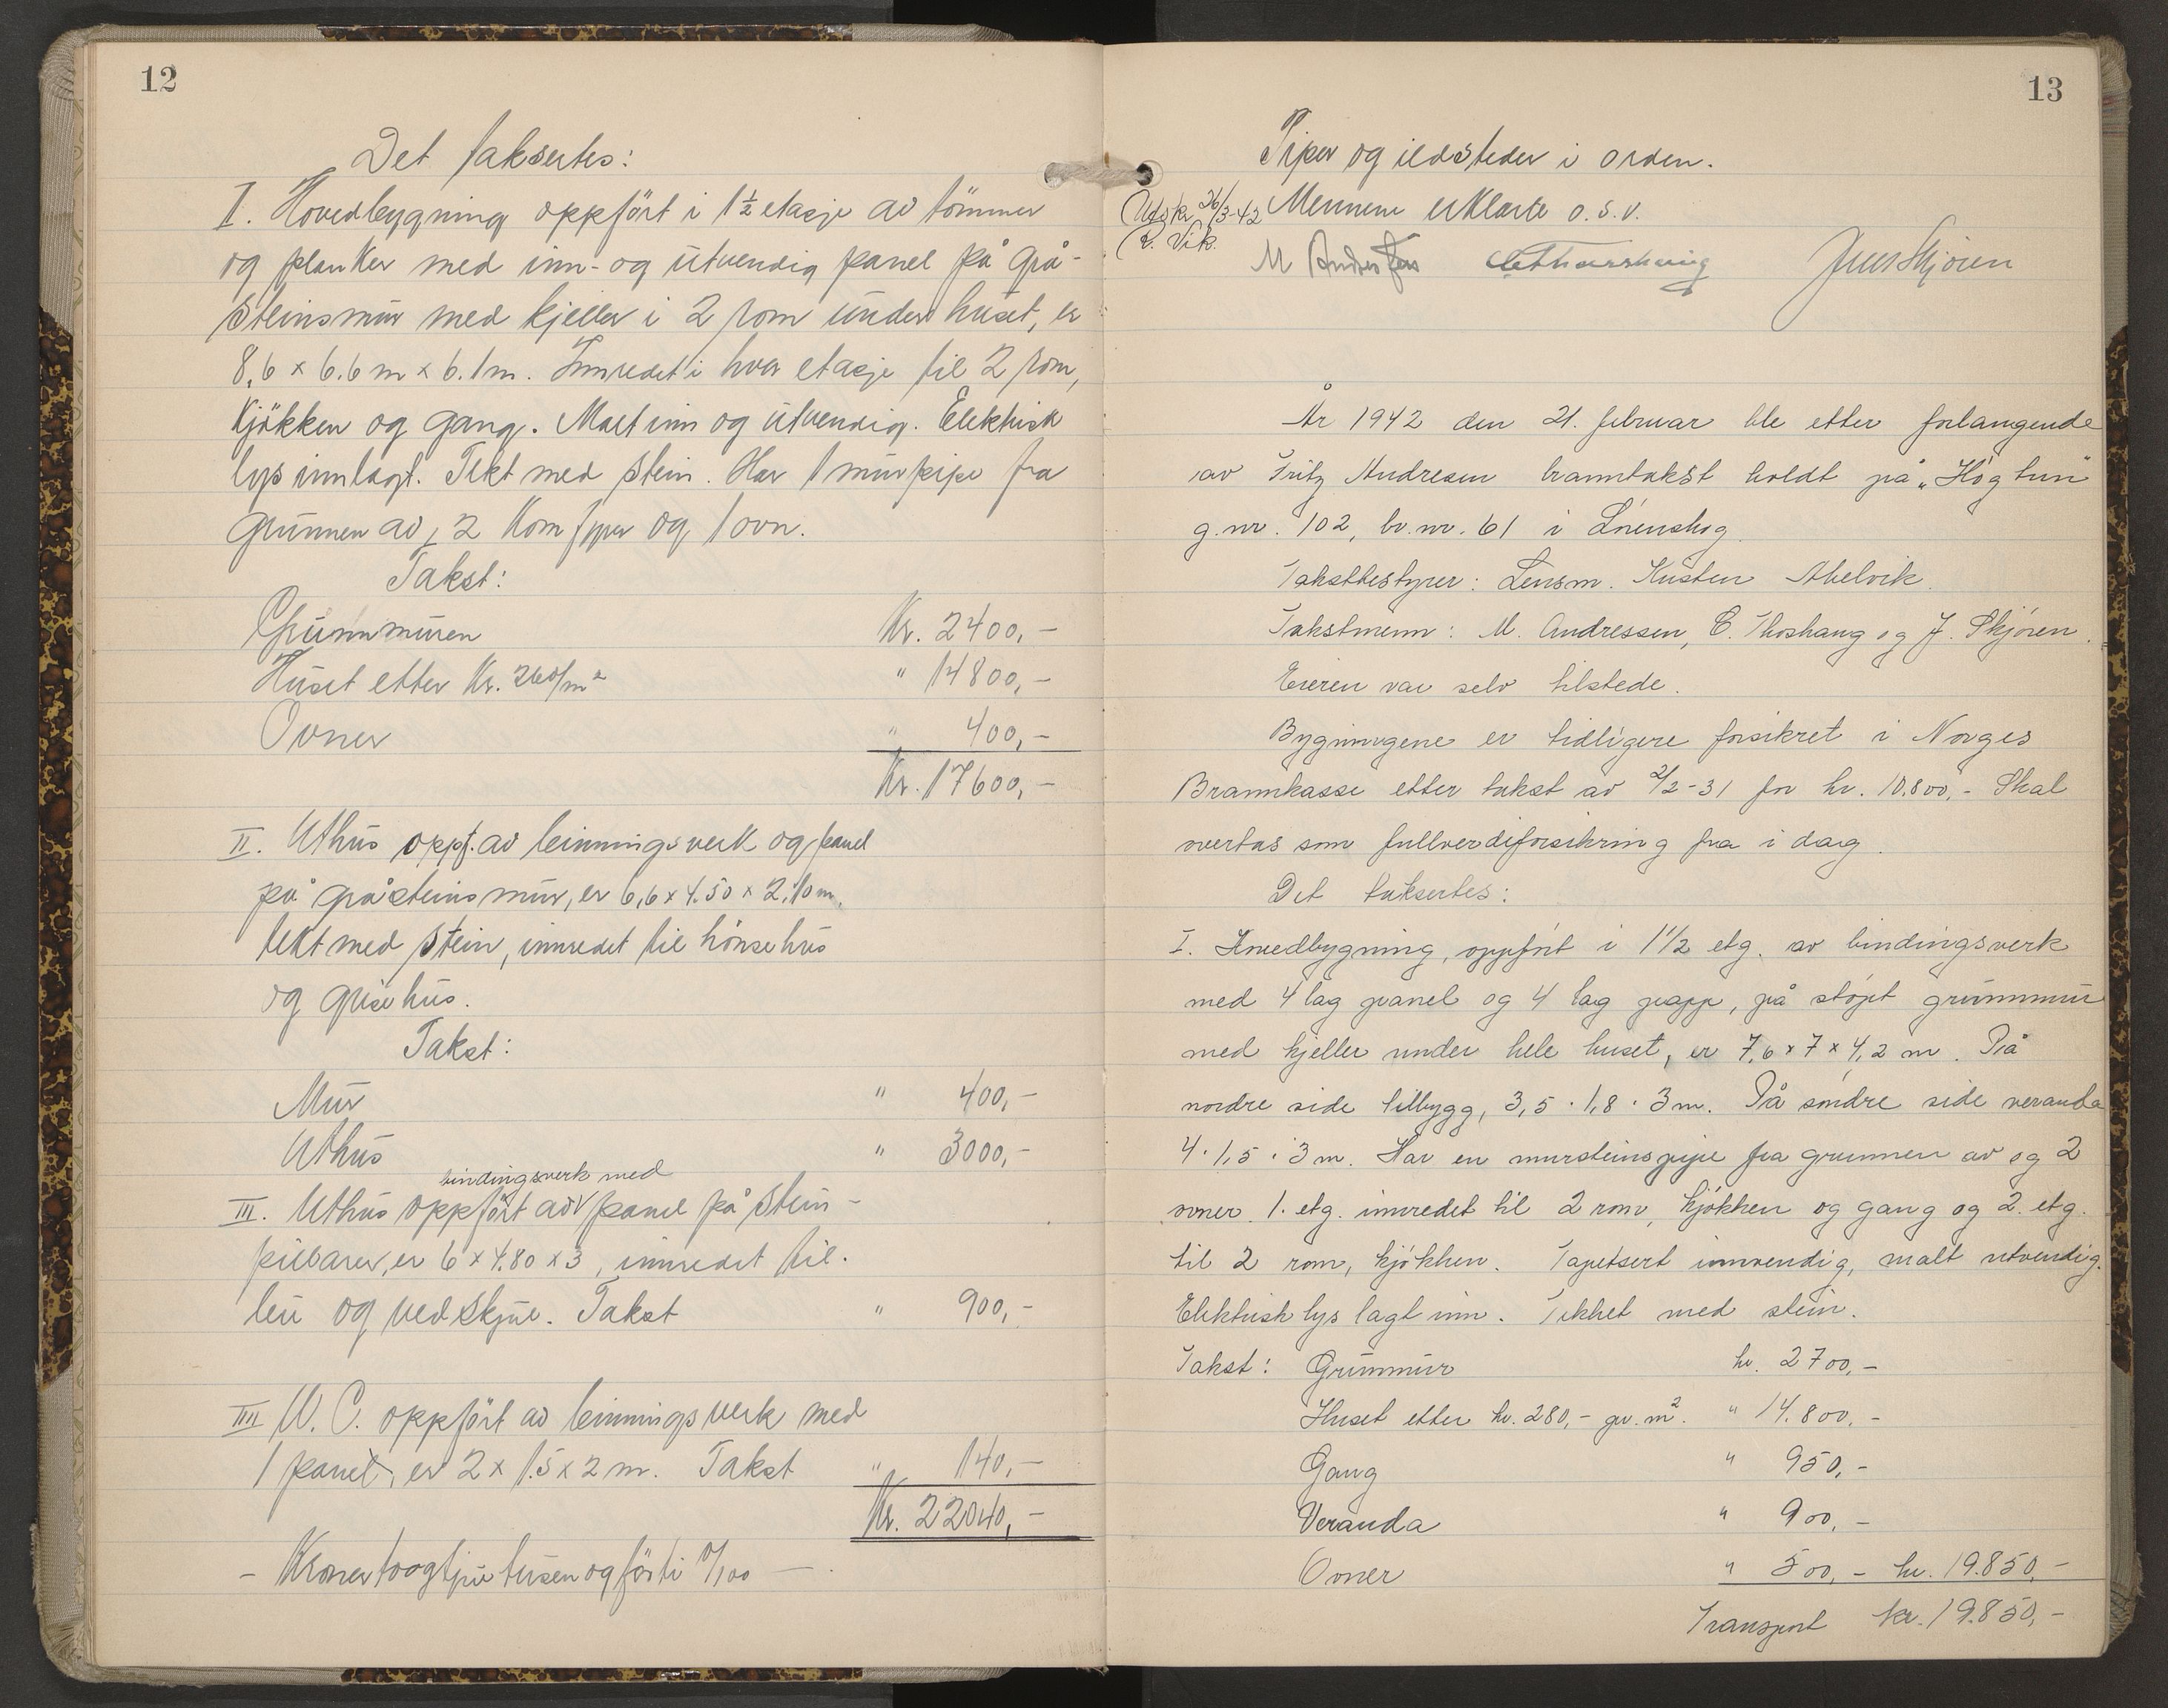 12
Det taksertes:
I. Hovedbygning oppført i 1½ etasje av tömmer
og planker med inn- og utvendig panel på grå-
steinsmur med kjeller i 2 rom under huset, er
8,6 x 6.6 m x 6.1 m. Innredet i hver etasje til 2 rom,
Kjökken og gang. Malt inn og utvendig. Elektrisk
lys innlagt. Tekt med stein. Har 1 murpipe fra
grunnen av, 2 Komfyrer og 1 ovn.
Takst:
Grunnmuren Kr. 2400,-
Huset etter Kr. 260/m² " 14800,-
Ovner " 400,-
Kr. 17600,-
II. Uthus oppf. av binningsverk og panel
på gråsteinsmur, er 6,6 x 4.50 x 2,10 m.
tekt med stein, innredet til hönsehus
og grisehus.
Takst:
Mur " 400,-
Uthus " 3000,-
bindingsverk med
III. Uthus oppfört av panel på stein-
pilarer, er 6 x 4.80 x 3, innredet til
og vedskjul. Takst " 900,-
IIII W. C. oppfört av binningsverk med
1 panel, er 2 x 1.5 x 2 m. Takst " 140,-
Kr. 22040,-
- Kroner toogtjue tusen og förti 0/100 -
13
Piper og ildsteder i orden.
Utskr 26/3-42 Mennene erklærte o.s.v.
R. Vik.
M Andresen Jens Skjören
År 1942 den 21. februar ble etter forlangende
av Fritz Andresen branntakst holdt på "Høgtun"
g.nr. 102, br.nr. 61 i Lörenskog.
Takstbestyrer: Lensm. Kristen Abelvik.
Takstmenn: M. Andressen, C. Thoshaug og J. Skjören.
Eieren var selv tilstede.
Bygningene er tidligere forsikret i Norges
Brannkasse etter takst av 2/2-31 for kr. 10.800,- Skal
overtas som fullverdiforsikring fra i dag.
Det taksertes:
I. Hovedbygning, oppfört i 1 1/2 etg. av bindingsverk
med 4 lag panel og 4 lag papp, på stöpt grunnmur
med kjeller under hele huset, er 7,6 x 7 x 4,2 m. På
nordre side tilbygg, 3,5 · 1,8 · 3 m. På söndre side veranda
4 · 1,5 · 3 m. Har en mursteinspipe fra grunnen av og 2
ovner. 1. etg. innredet til 2 rom, kjökken og gang og 2. etg.
til 2 rom, kjökken. Tapetsert innvendig, malt utvendig.
Elektrisk lys lagt inn. Tekket med stein.
Takst: Grunnmur kr. 2700,-
Huset etter kr. 280,- pr. m². " 14.800,-
Gang " 950,-
Veranda " 900,-
Ovner " 500,- kr. 19.850,-
Transport kr. 19.850,-